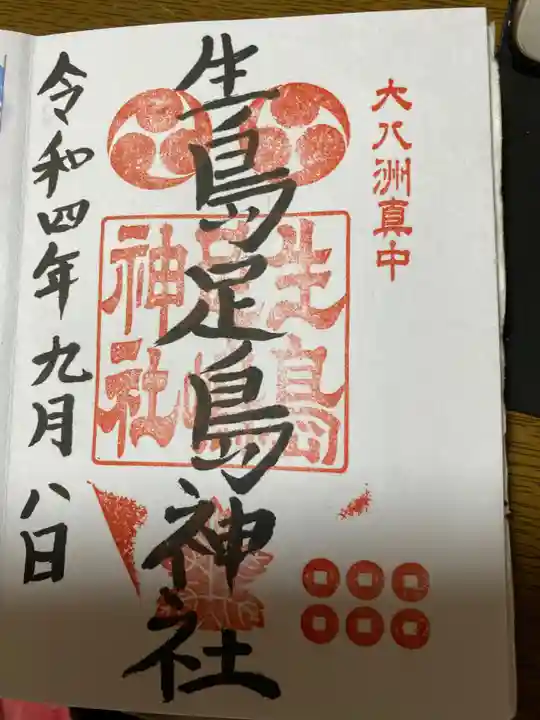 大八洲真中
生島足島神社
生島足島神社
令和四年九月八日